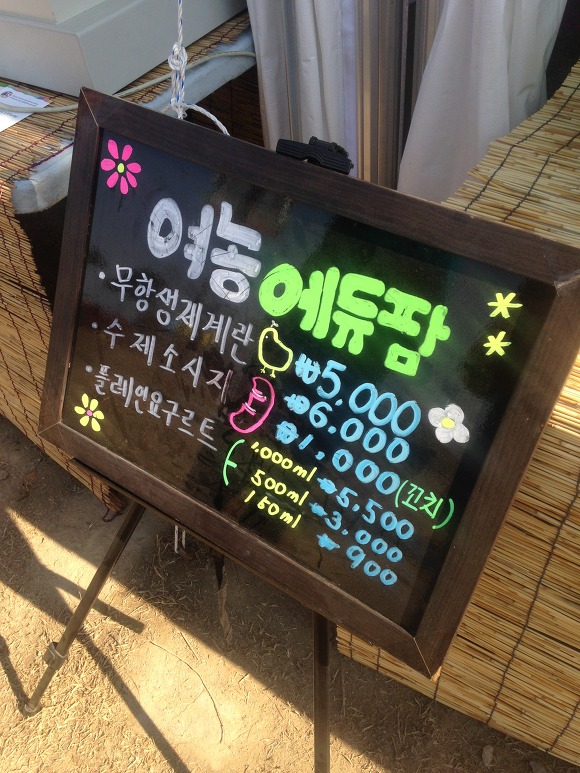 여농 에듀팜
· 무항생제계란 ₩5,000
· 수제소시지 ₩6,000
₩1,000(꼬치)
· 플레인요구르트 1,000ml ₩5,500
500ml ₩3,000
150ml ₩900